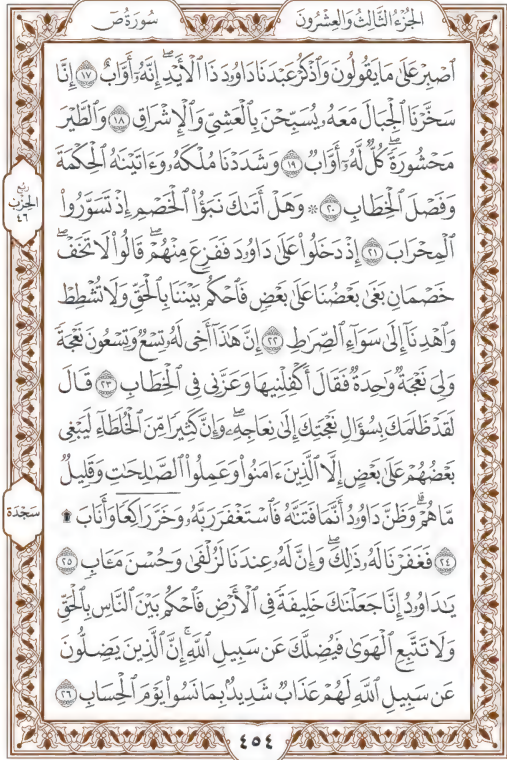 سُورَةُ صٓ
الجُزْءُ الثَّالِثُ وَالعِشْرُونَ
ٱصۡبِرۡ عَلَىٰ مَا يَقُولُونَ وَٱذۡكُرۡ عَبۡدَنَا دَاوُۥدَ ذَا ٱلۡأَيۡدِۖ إِنَّهُۥٓ أَوَّابٌ ١٧ إِنَّا
سَخَّرۡنَا ٱلۡجِبَالَ مَعَهُۥ يُسَبِّحۡنَ بِٱلۡعَشِيِّ وَٱلۡإِشۡرَاقِ ١٨ وَٱلطَّيۡرَ
مَحۡشُورَةٗۖ كُلّٞ لَّهُۥٓ أَوَّابٞ ١٩ وَشَدَدۡنَا مُلۡكَهُۥ وَءَاتَيۡنَٰهُ ٱلۡحِكۡمَةَ
وَفَصۡلَ ٱلۡخِطَابِ ٢٠ ۞ وَهَلۡ أَتَىٰكَ نَبَؤُاْ ٱلۡخَصۡمِ إِذۡ تَسَوَّرُواْ
ٱلۡمِحۡرَابَ ٢١ إِذۡ دَخَلُواْ عَلَىٰ دَاوُۥدَ فَفَزِعَ مِنۡهُمۡۖ قَالُواْ لَا تَخَفۡۖ
خَصۡمَانِ بَغَىٰ بَعۡضُنَا عَلَىٰ بَعۡضٖ فَٱحۡكُم بَيۡنَنَا بِٱلۡحَقِّ وَلَا تُشۡطِطۡ
وَٱهۡدِنَآ إِلَىٰ سَوَآءِ ٱلصِّرَٰطِ ٢٢ إِنَّ هَٰذَآ أَخِي لَهُۥ تِسۡعٞ وَتِسۡعُونَ نَعۡجَةٗ
وَلِيَ نَعۡجَةٞ وَٰحِدَةٞ فَقَالَ أَكۡفِلۡنِيهَا وَعَزَّنِي فِي ٱلۡخِطَابِ ٢٣ قَالَ
لَقَدۡ ظَلَمَكَ بِسُؤَالِ نَعۡجَتِكَ إِلَىٰ نِعَاجِهِۦۖ وَإِنَّ كَثِيرٗا مِّنَ ٱلۡخُلَطَآءِ لَيَبۡغِي
بَعۡضُهُمۡ عَلَىٰ بَعۡضٍ إِلَّا ٱلَّذِينَ ءَامَنُواْ وَعَمِلُواْ ٱلصَّٰلِحَٰتِ وَقَلِيلٞ
مَّا هُمۡۗ وَظَنَّ دَاوُۥدُ أَنَّمَا فَتَنَّٰهُ فَٱسۡتَغۡفَرَ رَبَّهُۥ وَخَرَّۤ رَاكِعٗاۤ وَأَنَابَ ۩
٢٤ فَغَفَرۡنَا لَهُۥ ذَٰلِكَۖ وَإِنَّ لَهُۥ عِندَنَا لَزُلۡفَىٰ وَحُسۡنَ مَـَٔابٖ ٢٥
يَٰدَاوُۥدُ إِنَّا جَعَلۡنَٰكَ خَلِيفَةٗ فِي ٱلۡأَرۡضِ فَٱحۡكُم بَيۡنَ ٱلنَّاسِ بِٱلۡحَقِّ
وَلَا تَتَّبِعِ ٱلۡهَوَىٰ فَيُضِلَّكَ عَن سَبِيلِ ٱللَّهِۚ إِنَّ ٱلَّذِينَ يَضِلُّونَ
عَن سَبِيلِ ٱللَّهِ لَهُمۡ عَذَابٞ شَدِيدُۢ بِمَا نَسُواْ يَوۡمَ ٱلۡحِسَابِ ٢٦
ربع
الحزب
٤٦
سَجْدَة
٤٥٤